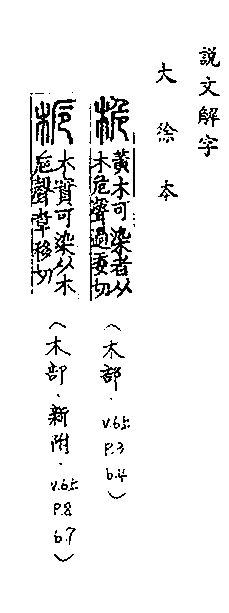 說文解字
大徐本
桅
黃木可染者从
木危聲過委切
(木部.v.6上 P.3 b.4)
木實可染从木
卮聲章移切
(木部.新附.v.6上 P.8 b.7)